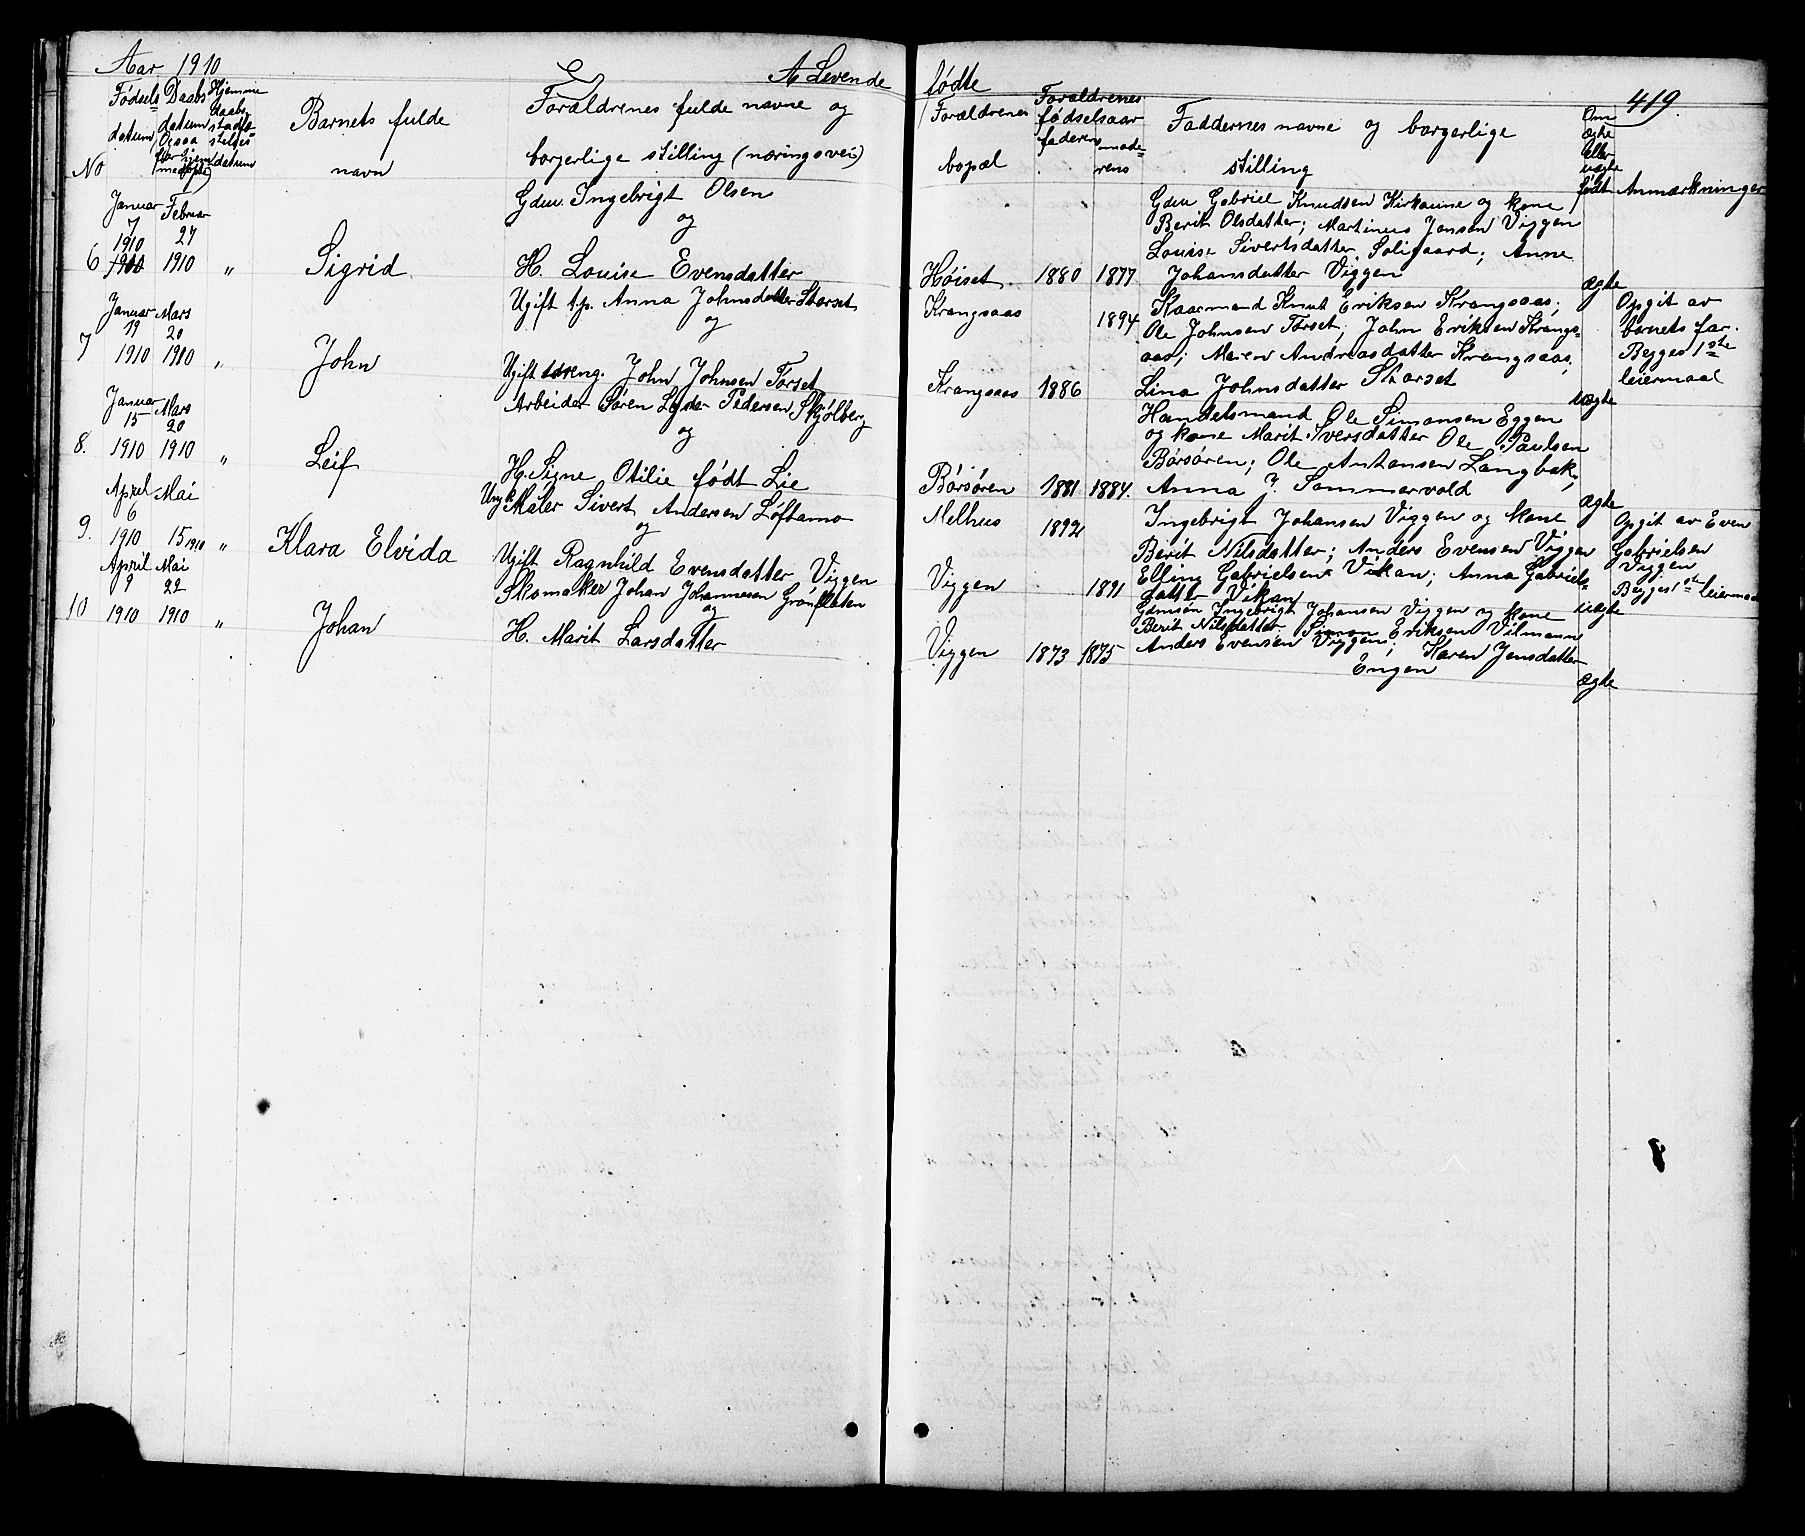 Aar 1910
A Levende fødte
419.
No
Fødsels datum
Daabs datum
Hjemme daabs stadfæstelses datum
Barnets fulde navn
Forældrenes fulde navne og
borgerlige stilling (næringsvei)
Forældrenes bopæl
Forældrenes fødselsaar
faderens
moderens
Faddernes navne og borgerlige
stilling
Om ægte eller uægte født
Anmærkninger
6
Januar 7 1910
Februar 27 1910
"
Sigrid
Gdm. Ingebrigt Olsen
og
H. Louise Evensdatter
Høiset
1880
1877
Gdm Gabriel Knudsen Kirkaune og kone
Berit Olsdatter; Martinus Jensen Viggen
Louise Sivertsdatter Soligaard; Anne
Johansdatter Viggen
ægte
7
Januar 19 1910
Mars 20 1910
"
John
Ugift tp. Anna Johnsdatter Storset
og
Ugift tdreng. John Johnsen Torset
Krangsaas
1894
Krangsaas
1886
Kaarmand Knut Eriksen Krangsaas;
Ole Johnsen Torset; John Eriksen Krangs-
aas; Maren Andreasdatter Krangsaas;
Lina Johnsdatter Storset
uægte
Opgit av
barnets far.
Begges 1ste
leiermaal
8.
Januar 15 1910
Mars 20 1910
"
Leif
Arbeider Søren Pedersen Skjølberg
og
H. Signe Otilie født Lie
Børsøren
1881
1884.
Handelsmand Ole Simonsen Eggen
og kone Marit Iversdatter Ole Paulsen
Børsøren; Ole Antonsen Langbak;
Anna J. Sommervold
ægte
9.
April 6 1910
Mai 15 1910
"
Klara Elvida
Ungk Maler Sivert Andersen Løftamo
og
Ugift Ragnhild Evensdatter Viggen
Melhus
1892
Viggen
1891
Ingebrigt Johansen Viggen og kone
Berit Nilsdatter; Anders Evensen Viggen
Elling Gabrielsen Vikan; Anna Gabriels-
datter Vikan
uægte
Opgit av Even
Gabrielsen
Viggen
Begges 1ste leiermaal
10
April 9 1910
Mai 22 1910
"
Johan
Skomaker Johan Johannesen Grønflaten
og
H. Marit Larsdatter
Viggen
1873
1875
Gdmsøn Ingebrigt Johansen Viggen og kone
Berit Nilsdatter Simon Eriksen Vilmann
Anders Evensen Viggen; Karen Jensdatter
Engen
ægte